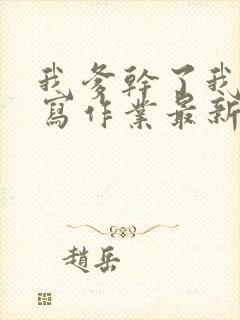 我爹幹了我
寫作業最新
趙岳